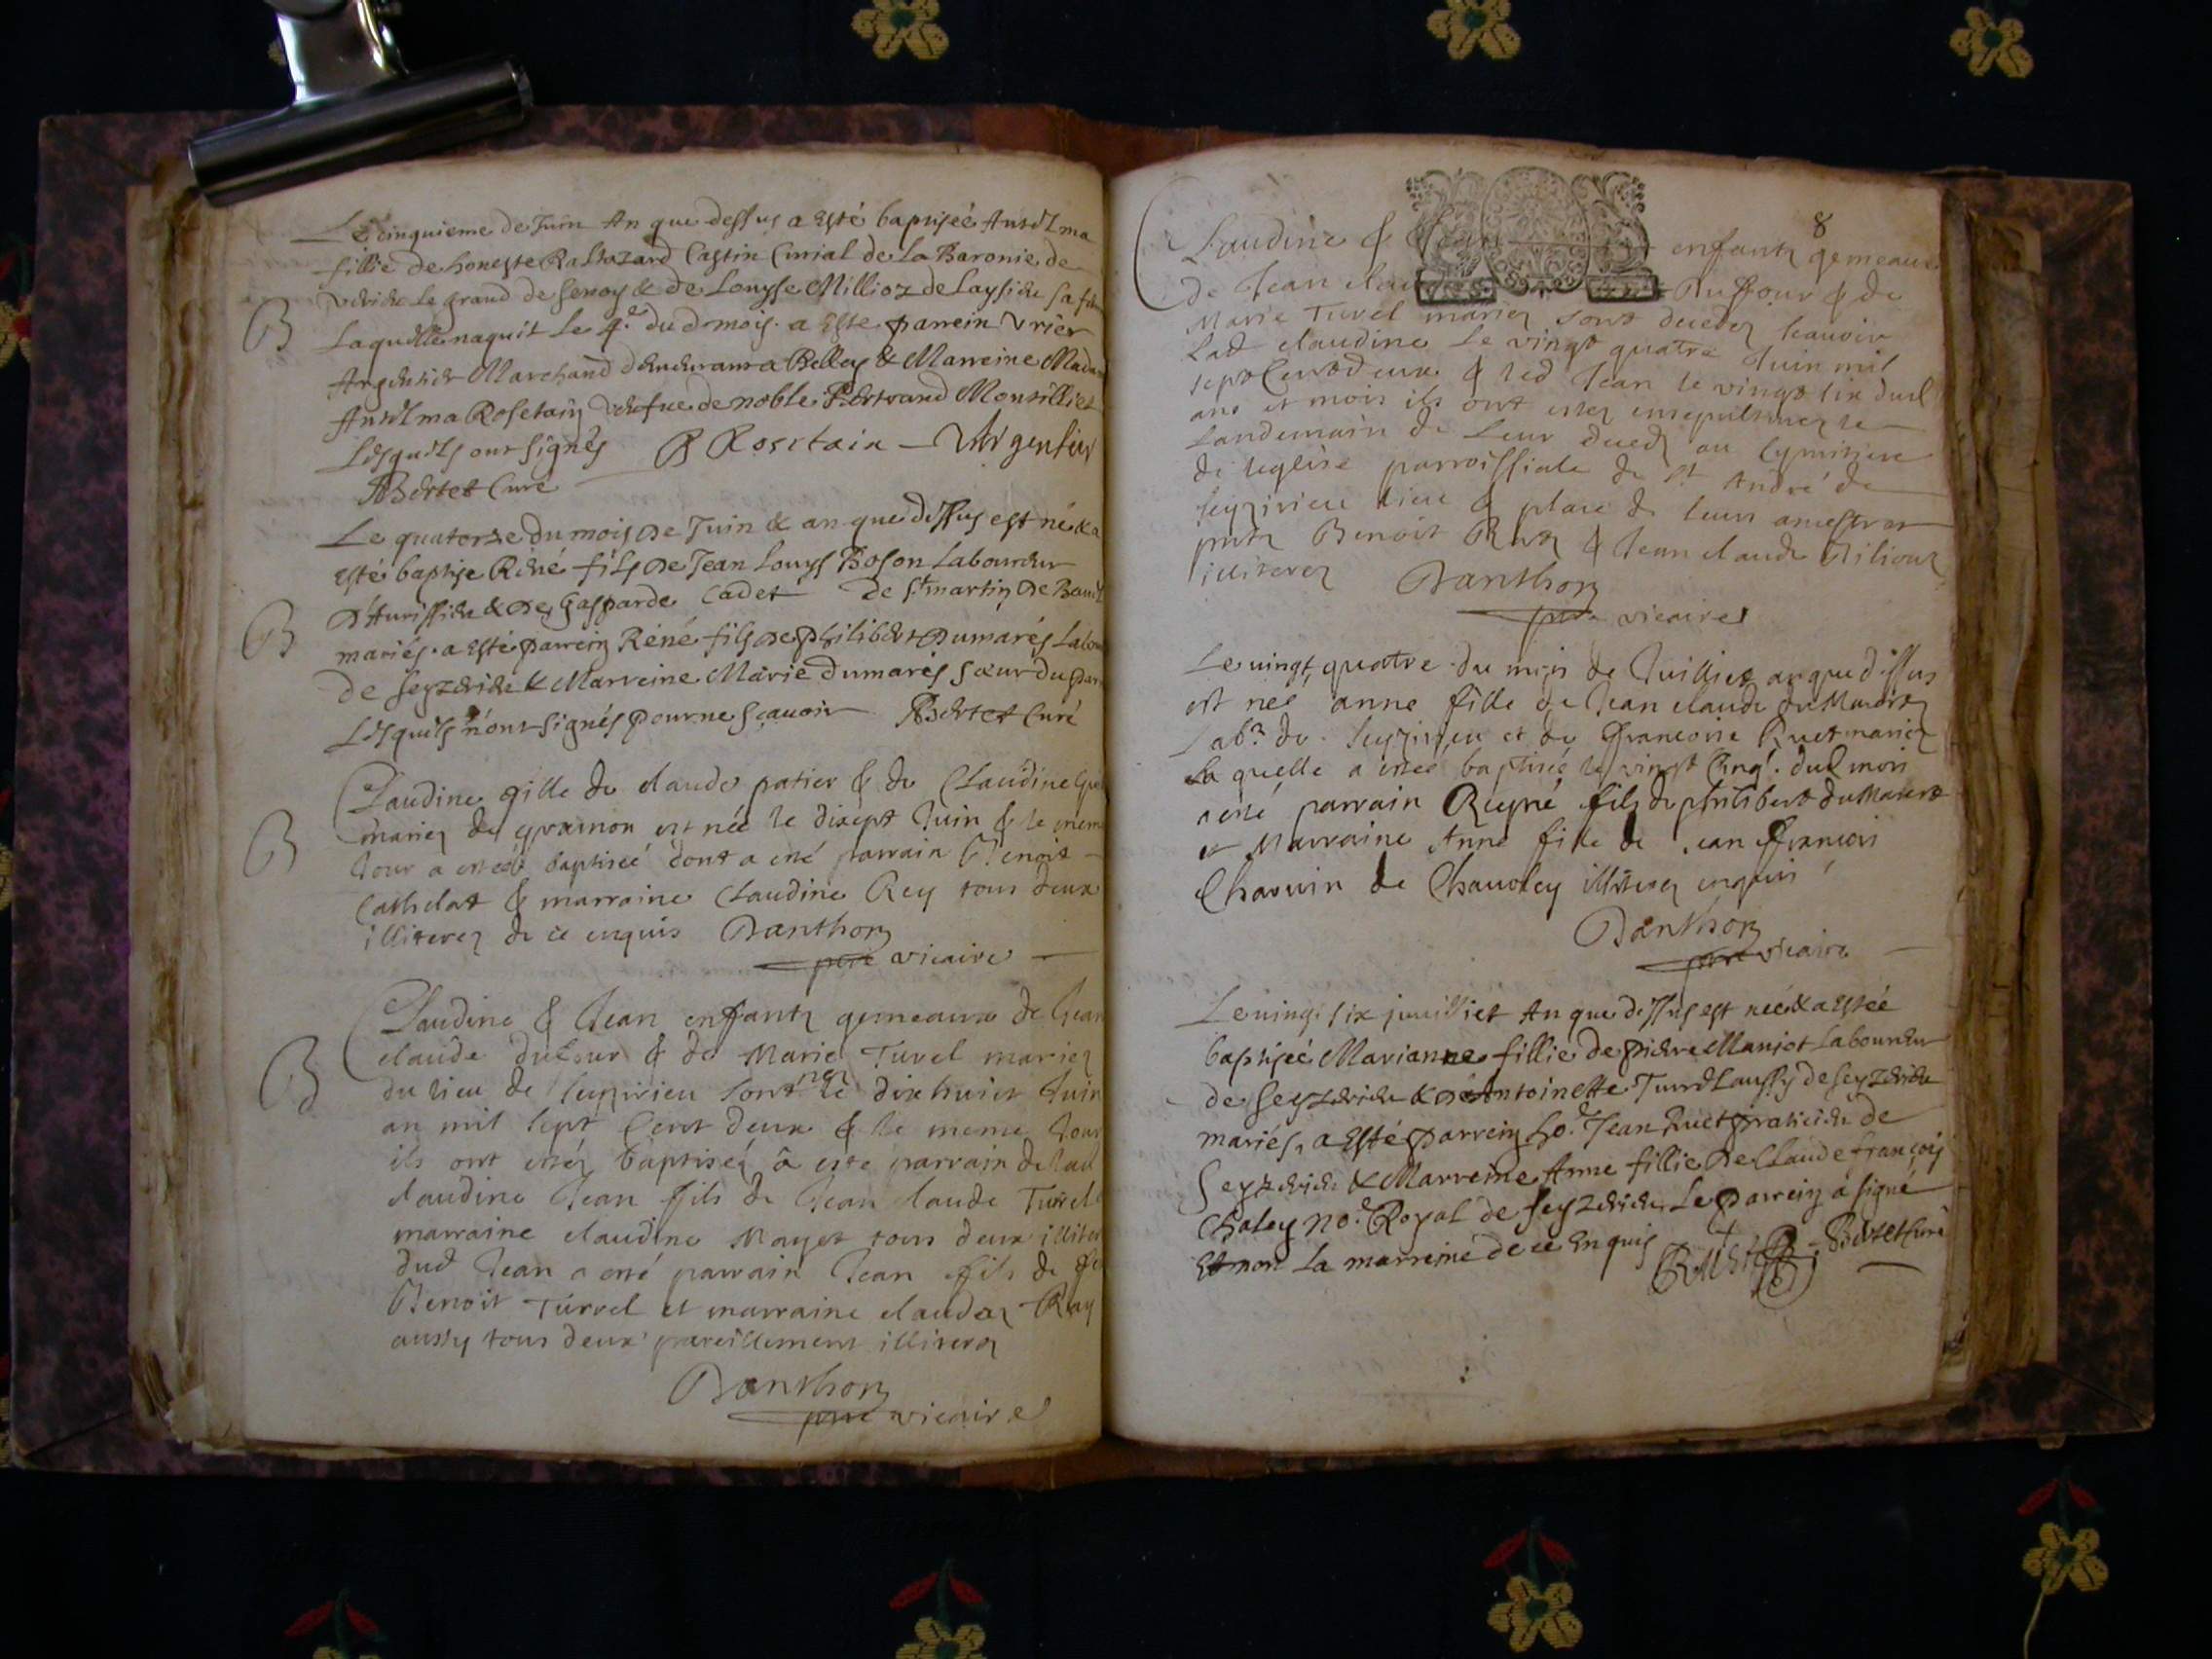 Le cinquieme de Juin An que dessus a Esté baptisée Antelma
fillie de honeste Baltazard Castin Curial de la Baronie de
le grand de Senoy & de Louyse Millioz de Laysieu sa
Laquelle naquit le 4.e du d mois. a Este parrein Vrier
Argentier Marchand demeurant a Belley & Marreine
Antelma Rosetain vefue de noble Bertrand Monsilliet
Lesquels ont signés B Rosetain – Argentier
Bertet Curé
B
Le quatorze du mois de Juin & an que dessus est né & a
Esté baptise Réné fils de Jean Louys Boson Laboureur
& de Gasparde Cadet de St martin de
mariés. a Esté parrein Réné fils de philibert Dumarés
de Seyzerieu & Marreine Marie dumarés Sœur du
Lesquels n'ont signés pour ne scauoir Bertet Curé
B
Claudine fille de claude patier & de Claudine
mariez de est née le disept Juin & le
Jour a estée baptiseé dont a esté parrain Benoit
Cathelat & marraine Claudine Rey tous deux
illiterez de ce enquis Danthon
pbre vicaire
B
Claudine & Jean enfantz gemeaux de Jean
claude dufour & de Marie Turel mariez
du lieu de Seyzirieu sont nez le dixhuict Juin
an mil sept Cent deux & le meme Jour
ils ont estéz baptiséz a esté parrain de lad
claudine Jean fils de Jean claude Turrel
marraine claudine Mayet tous deux
dud Jean a esté parrain Jean fils de
Benoit Turrel et marraine Ray
aussy tous deux pareillement illiterez
Danthon
pbre vicaire
B
8
Claudine & Jean enfantz gemeaux
de Jean Dufour & de
Marie Turel mariez sont decedez scauoir
Lad claudine le vingt quatre Juin mil
sept Cent deux & led Jean le vingt six dud
ans et mois ils ont estez ensepulturez le
landemain de leur decedz au Cymitiere
de leglise parroissiale de St André de
Seyzirieu lieu & place de leurs ancestres
pntz Benoit & Jean claude
illiterez Danthon
pbre vicaire
Le vingt quatre du mois de Juilliet an que dessus
est neé anne fille de Jean claude duMarest
Labr. de Seyzirieu et de francoise Ruet mariez
La quelle a esteé baptisée le vingt Cinq. dud mois
a esté parrain Reyné fils de philibert duMarest
et Marraine Anne fille de Jean francois
Charuin de Chauoley illiterez enquis
Danthon
pbre vicaire
Le vingt six juilliet An que dessus est née & a Estée
baptiseé Marianne fillie de pierre Manjot Laboureur
de Seyzerieu & de Antoinette de Seyzerieu
mariés, a Esté parrein ho.e Jean Ruet praticien de
Seyzerieu & Marreine Anne fillie de Claude françois
Chaley no.e Royal de Seyzerieu. Le parrein a signé
Et non la marreine de ce Enquis Ruet Bertet Curé